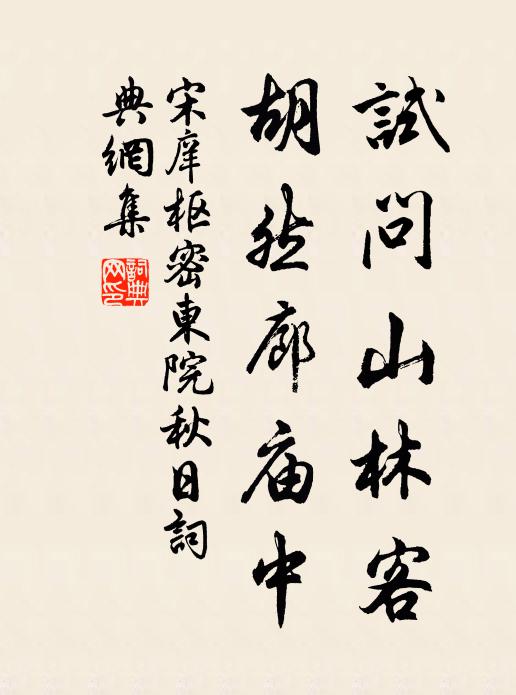 試問山林客
胡然廊庙中
宋庠枢密東院秋日詞
典網集
詞典
网印